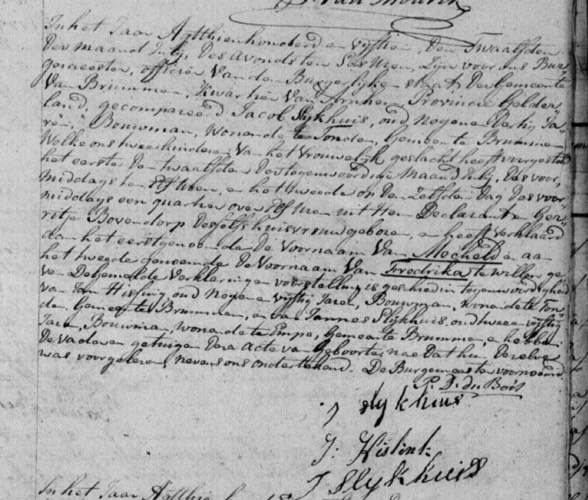 In het Jaar Agtthienhonderd en vyftien, den Twaalfden
der maand July, des avonds ten Ses uren, Zyn voor ons Bur-
gemeester, officier van den Burgerlyke staat, der Gemeente
van Brummen, Kwartier van Arnhem Provincie Gelder-
land, gecompareerd Jacob Slykhuis, oud Negen en dertig Ja-
ren, Bouwman, wonende te Tonden Gemeente Brummen,
Welke ons twee kinderen van het vrouwelyk geslacht heeft voorgesteld
het eerste den twaalfden dezer tegenwoordige maand July, des voor-
middags ten Elf uren, en het tweede op den Zelfden dag des voor-
middags een quartier over Elf uren uit Hem Declarant en Ger-
ritje Bovendorp deszelfs huisvrouw geboren, en heeft verklaard
aan het eerstgenoemde de Voornaam van Mecheld en aan
het tweede genoemde de Voornaam van Fredrika te willen ge-
ven De gemelde Verklaring en voorstelling is geschied in tegenwoordigheid
van Jan Hissink, oud Negen en vyftig Jaren, Bouwman, wonende te Ton-
den, Gemeente Brummen, en van Jannes Slykhuis, oud twee en vyftig
Jaren, Bouwman, wonende te Empe, Gemeente Brummen, en hebben
de vader en getuigen deze Acte van geboorte, na dat hun dezelve
was voorgelezen, nevens ons onderteekend. De Burgemeester voornoemd
P. D. du Bois
J Slykhuis
J. Hislink
J Slykhuis
In het Jaar Agtthien